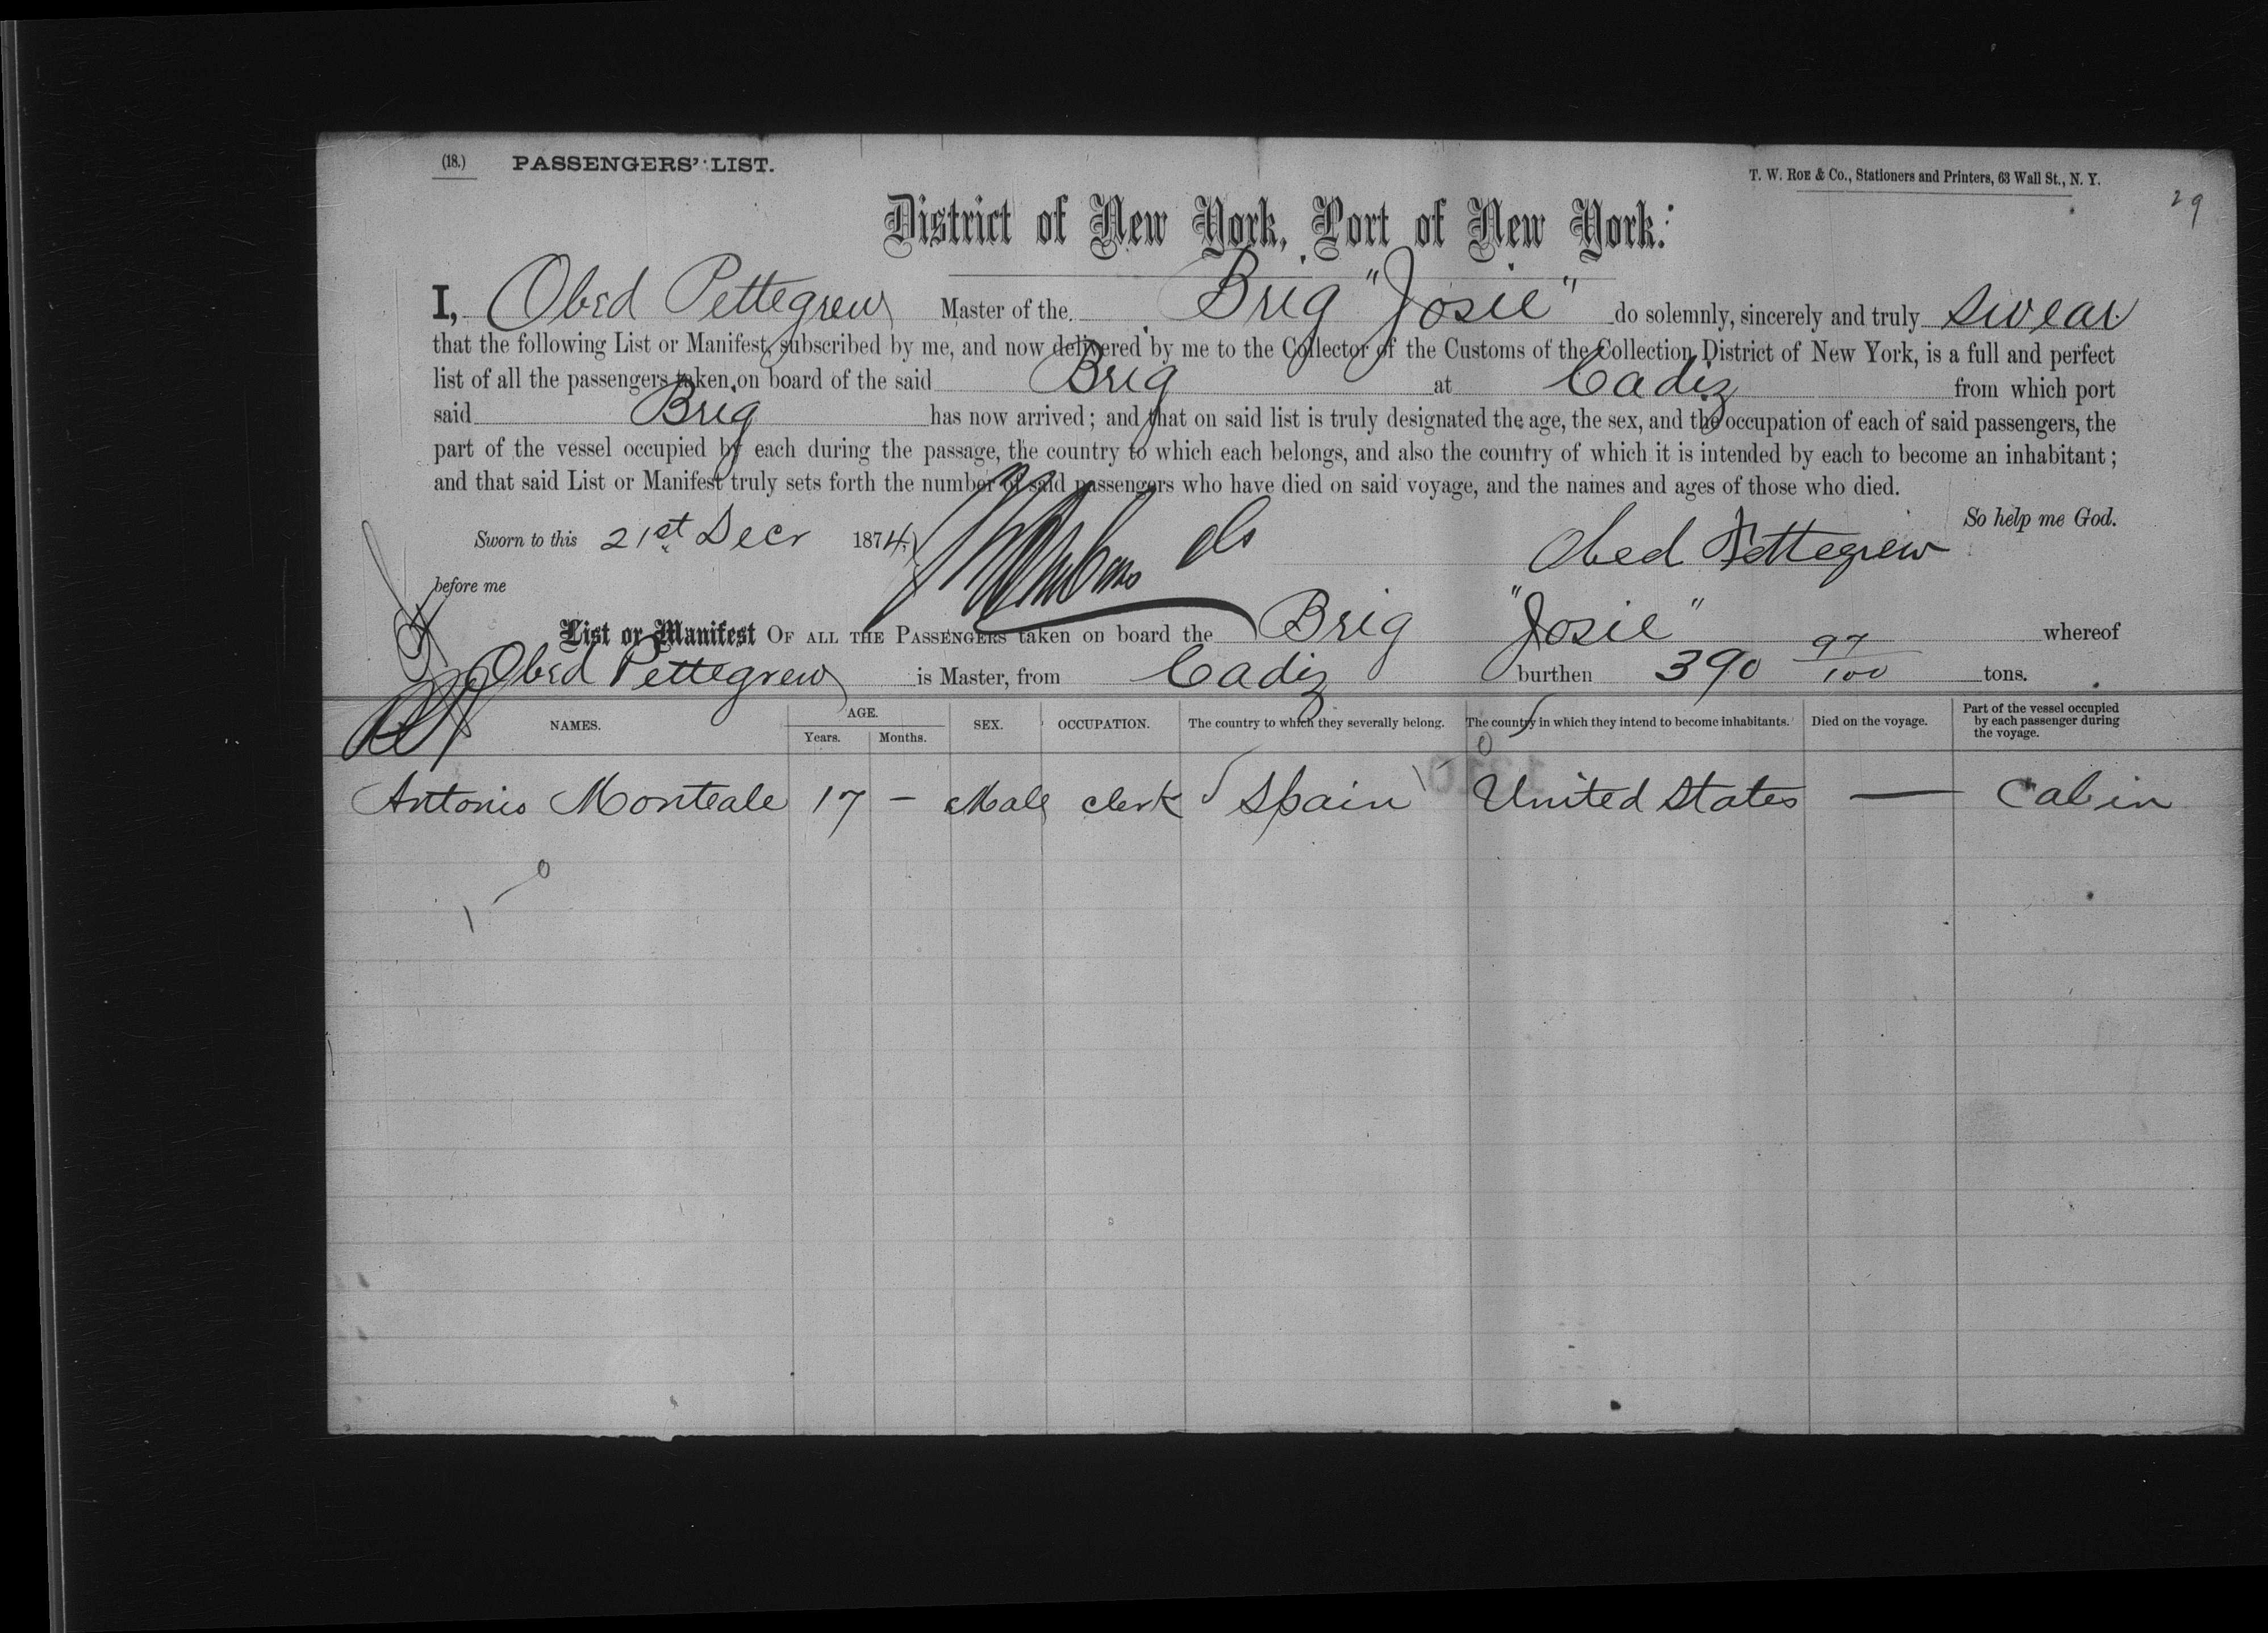 (18.) PASSENGERS' LIST.
T. W. Roe & Co., Stationers and Printers, 63 Wall St., N. Y.
29
District of New York, Port of New York:
I, Obed Pettegrew Master of the Brig "Josie" do solemnly, sincerely and truly swear
that the following List or Manifest, subscribed by me, and now delivered by me to the Collector of the Customs of the Collection District of New York, is a full and perfect
list of all the passengers taken on board of the said Brig at Cadiz from which port
said Brig has now arrived; and that on said list is truly designated the age, the sex, and the occupation of each of said passengers, the
part of the vessel occupied by each during the passage, the country to which each belongs, and also the country of which it is intended by each to become an inhabitant;
and that said List or Manifest truly sets forth the number of said passengers who have died on said voyage, and the names and ages of those who died.
So help me God.
Sworn to this 21st Decr 1874,
Obed Pettegrew
before me
List or Manifest OF ALL THE PASSENGERS taken on board the Brig "Josie" whereof
Obed Pettegrew is Master, from Cadiz burthen 390 97/100 tons.
NAMES. AGE. Years. Months. SEX. OCCUPATION. The country to which they severally belong. The country in which they intend to become inhabitants. Died on the voyage. Part of the vessel occupied by each passenger during the voyage.
Antonio Monteale 17 – Male clerk Spain United States — Cabin